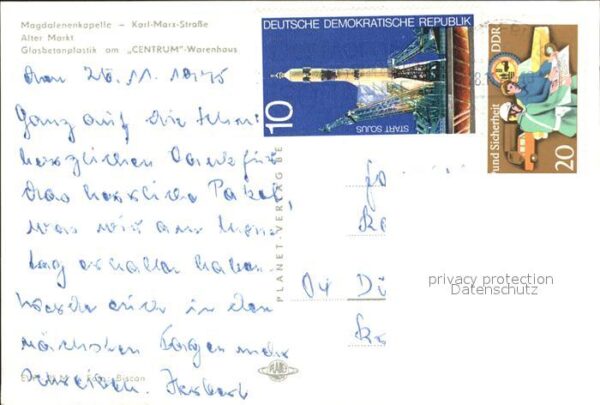 Magdalenenkapelle – Karl-Marx-Straße
Alter Markt
Glasbetonplastik am „CENTRUM"-Warenhaus
26.11.1975
Ganz auf die Schnelle
herzlichen Dank für
das herrliche Paket,
was wir am
tag erhalten haben.
Werde euch in den
nächsten Tagen mehr
schreiben. Herbert
PLANET-VERLAG BE
DEUTSCHE DEMOKRATISCHE REPUBLIK
10
START SOJUS
DDR
und Sicherheit
20
04 Dü
privacy protection
Datenschutz
PLANET
Biscan